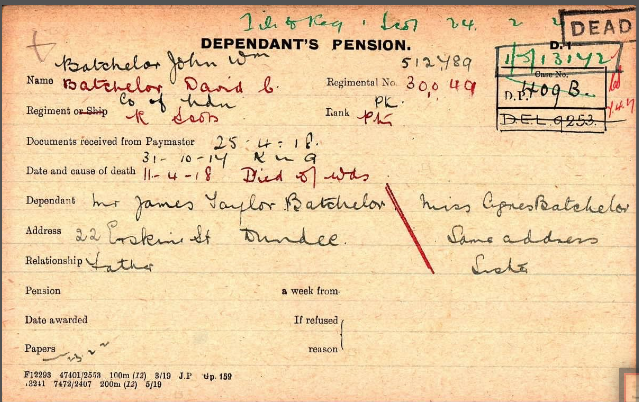 DEAD
DEPENDANT'S PENSION. D.1
Batchelor John Wm 512489
Name Batchelor David C. Regimental No. 30,049
1/D/13142
Case No.
D.P. 409B.
DEL 9253.
Co of Ldn Pte.
Regiment or Ship R Scots Rank Pte
Documents received from Paymaster 25.4.18.
31-10-17 K in A
Date and cause of death 11-4-18 Died of wds
Dependant Mr James Taylor Batchelor. Miss Agnes Batchelor
Address 22 Erskine St Dundee. Same address
Relationship Father Sister
Pension a week from
Date awarded If refused
Papers reason
F12293 47401/2553 100m (12) 3/19 J.P Gp. 159
.3241 7473/2407 200m (12) 5/19